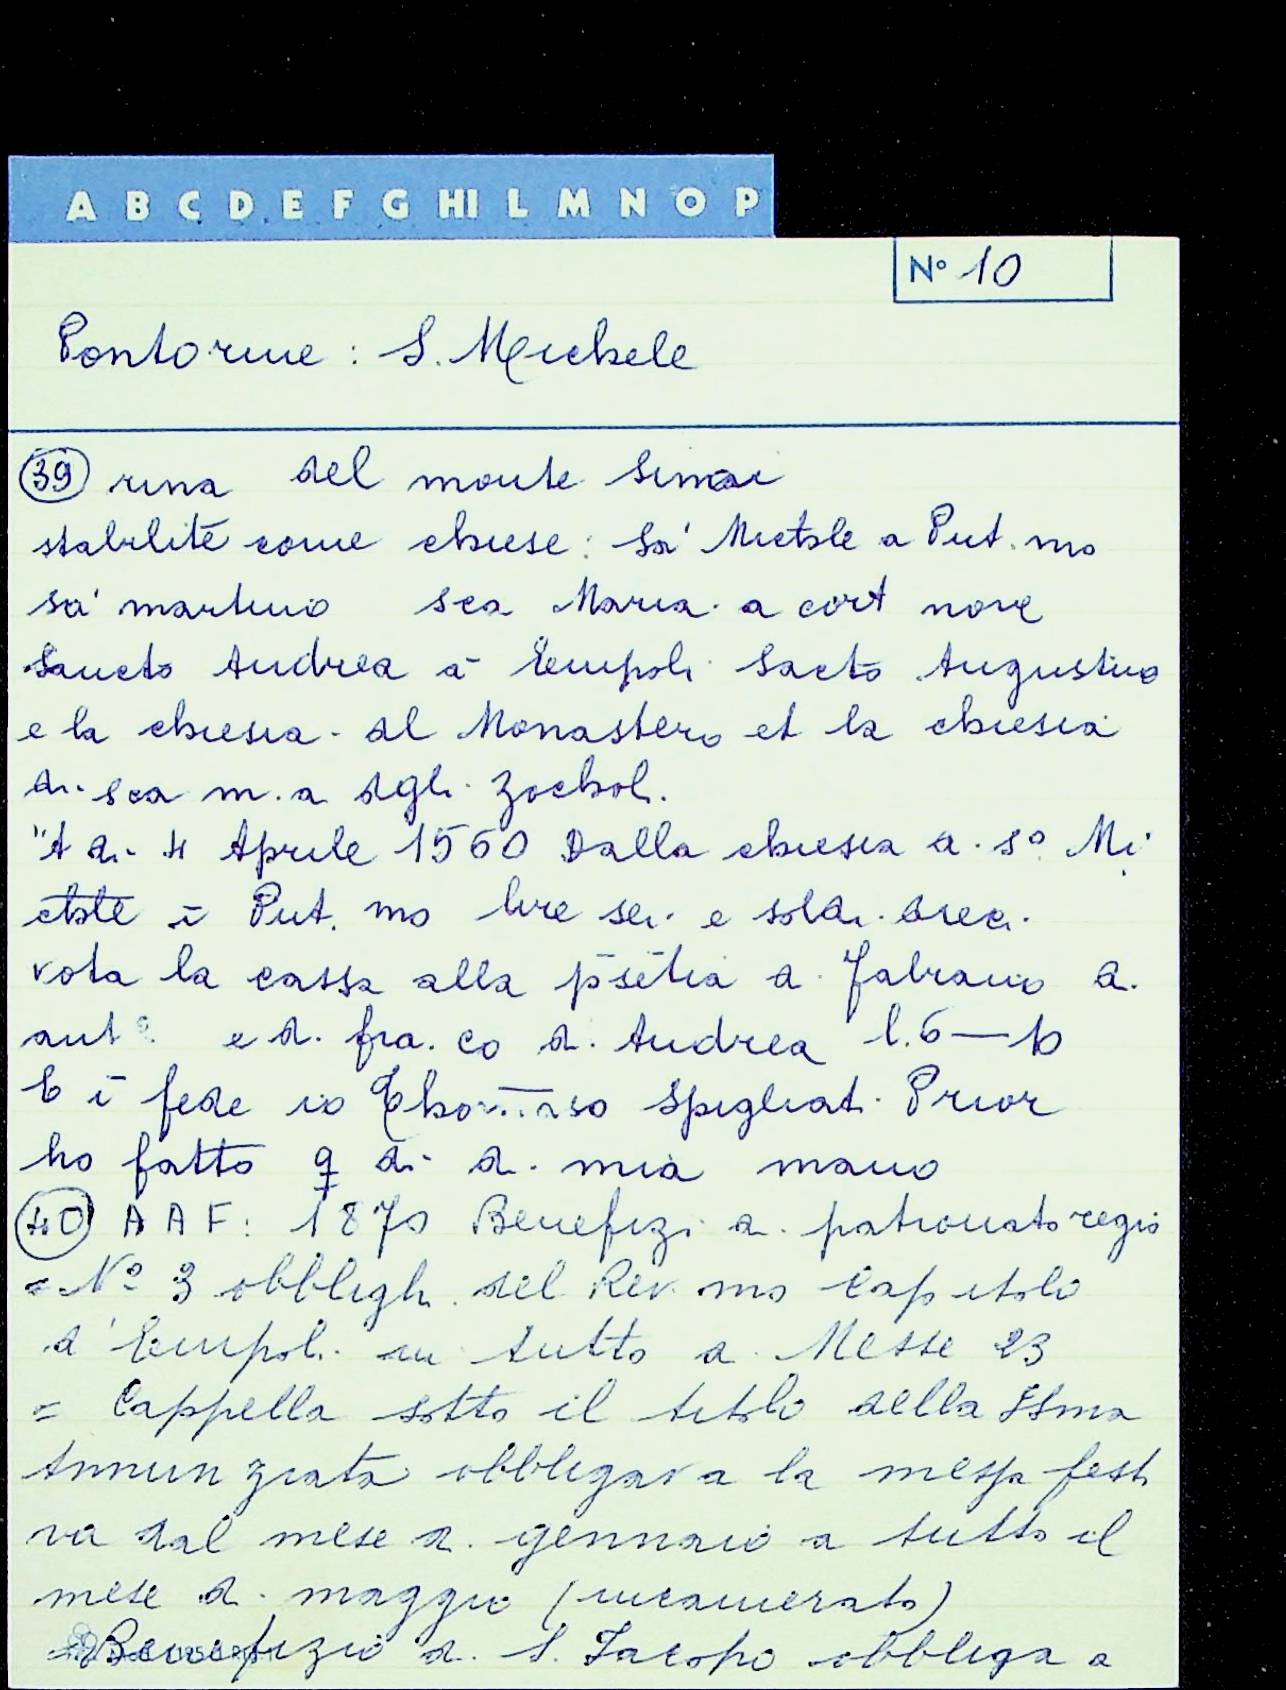 A B C D E F G HI L M N O P
N° 10
Pontorme : S. Michele
39 rina del monte Sinai
stabilite come chiese: Sa' Michele a Put. mo
sa' martino sca Maria a cort nove
Sancto Andrea a Empoli Sacto Augustino
e la chiesia dl Monastero et la chiesia
di sca m.a dgli zochol.
"A di 4 Aprile 1560 Dalla chiesia di s° Mi
chele i Put. mo lire sei e soldi dieci
vota la cassa alla psetia di Fabiano di
ant° e di fra.co di Andrea l. 6 — 10
E i fede io Thomaso Spigliati Prior
ho fatto q di di mia mano
40 A A F: 1870 Benefizi di patronato regio
= N° 3 obblighi del Rev.mo Capitolo
d'Empoli in tutto di Messe 23
= Cappella sotto il titolo della SSma
Annunziata obbligava la messa festi
va dal mese di gennaio a tutto il
mese di maggio (incamerato)
= Benefizio di S. Jacopo obbliga a